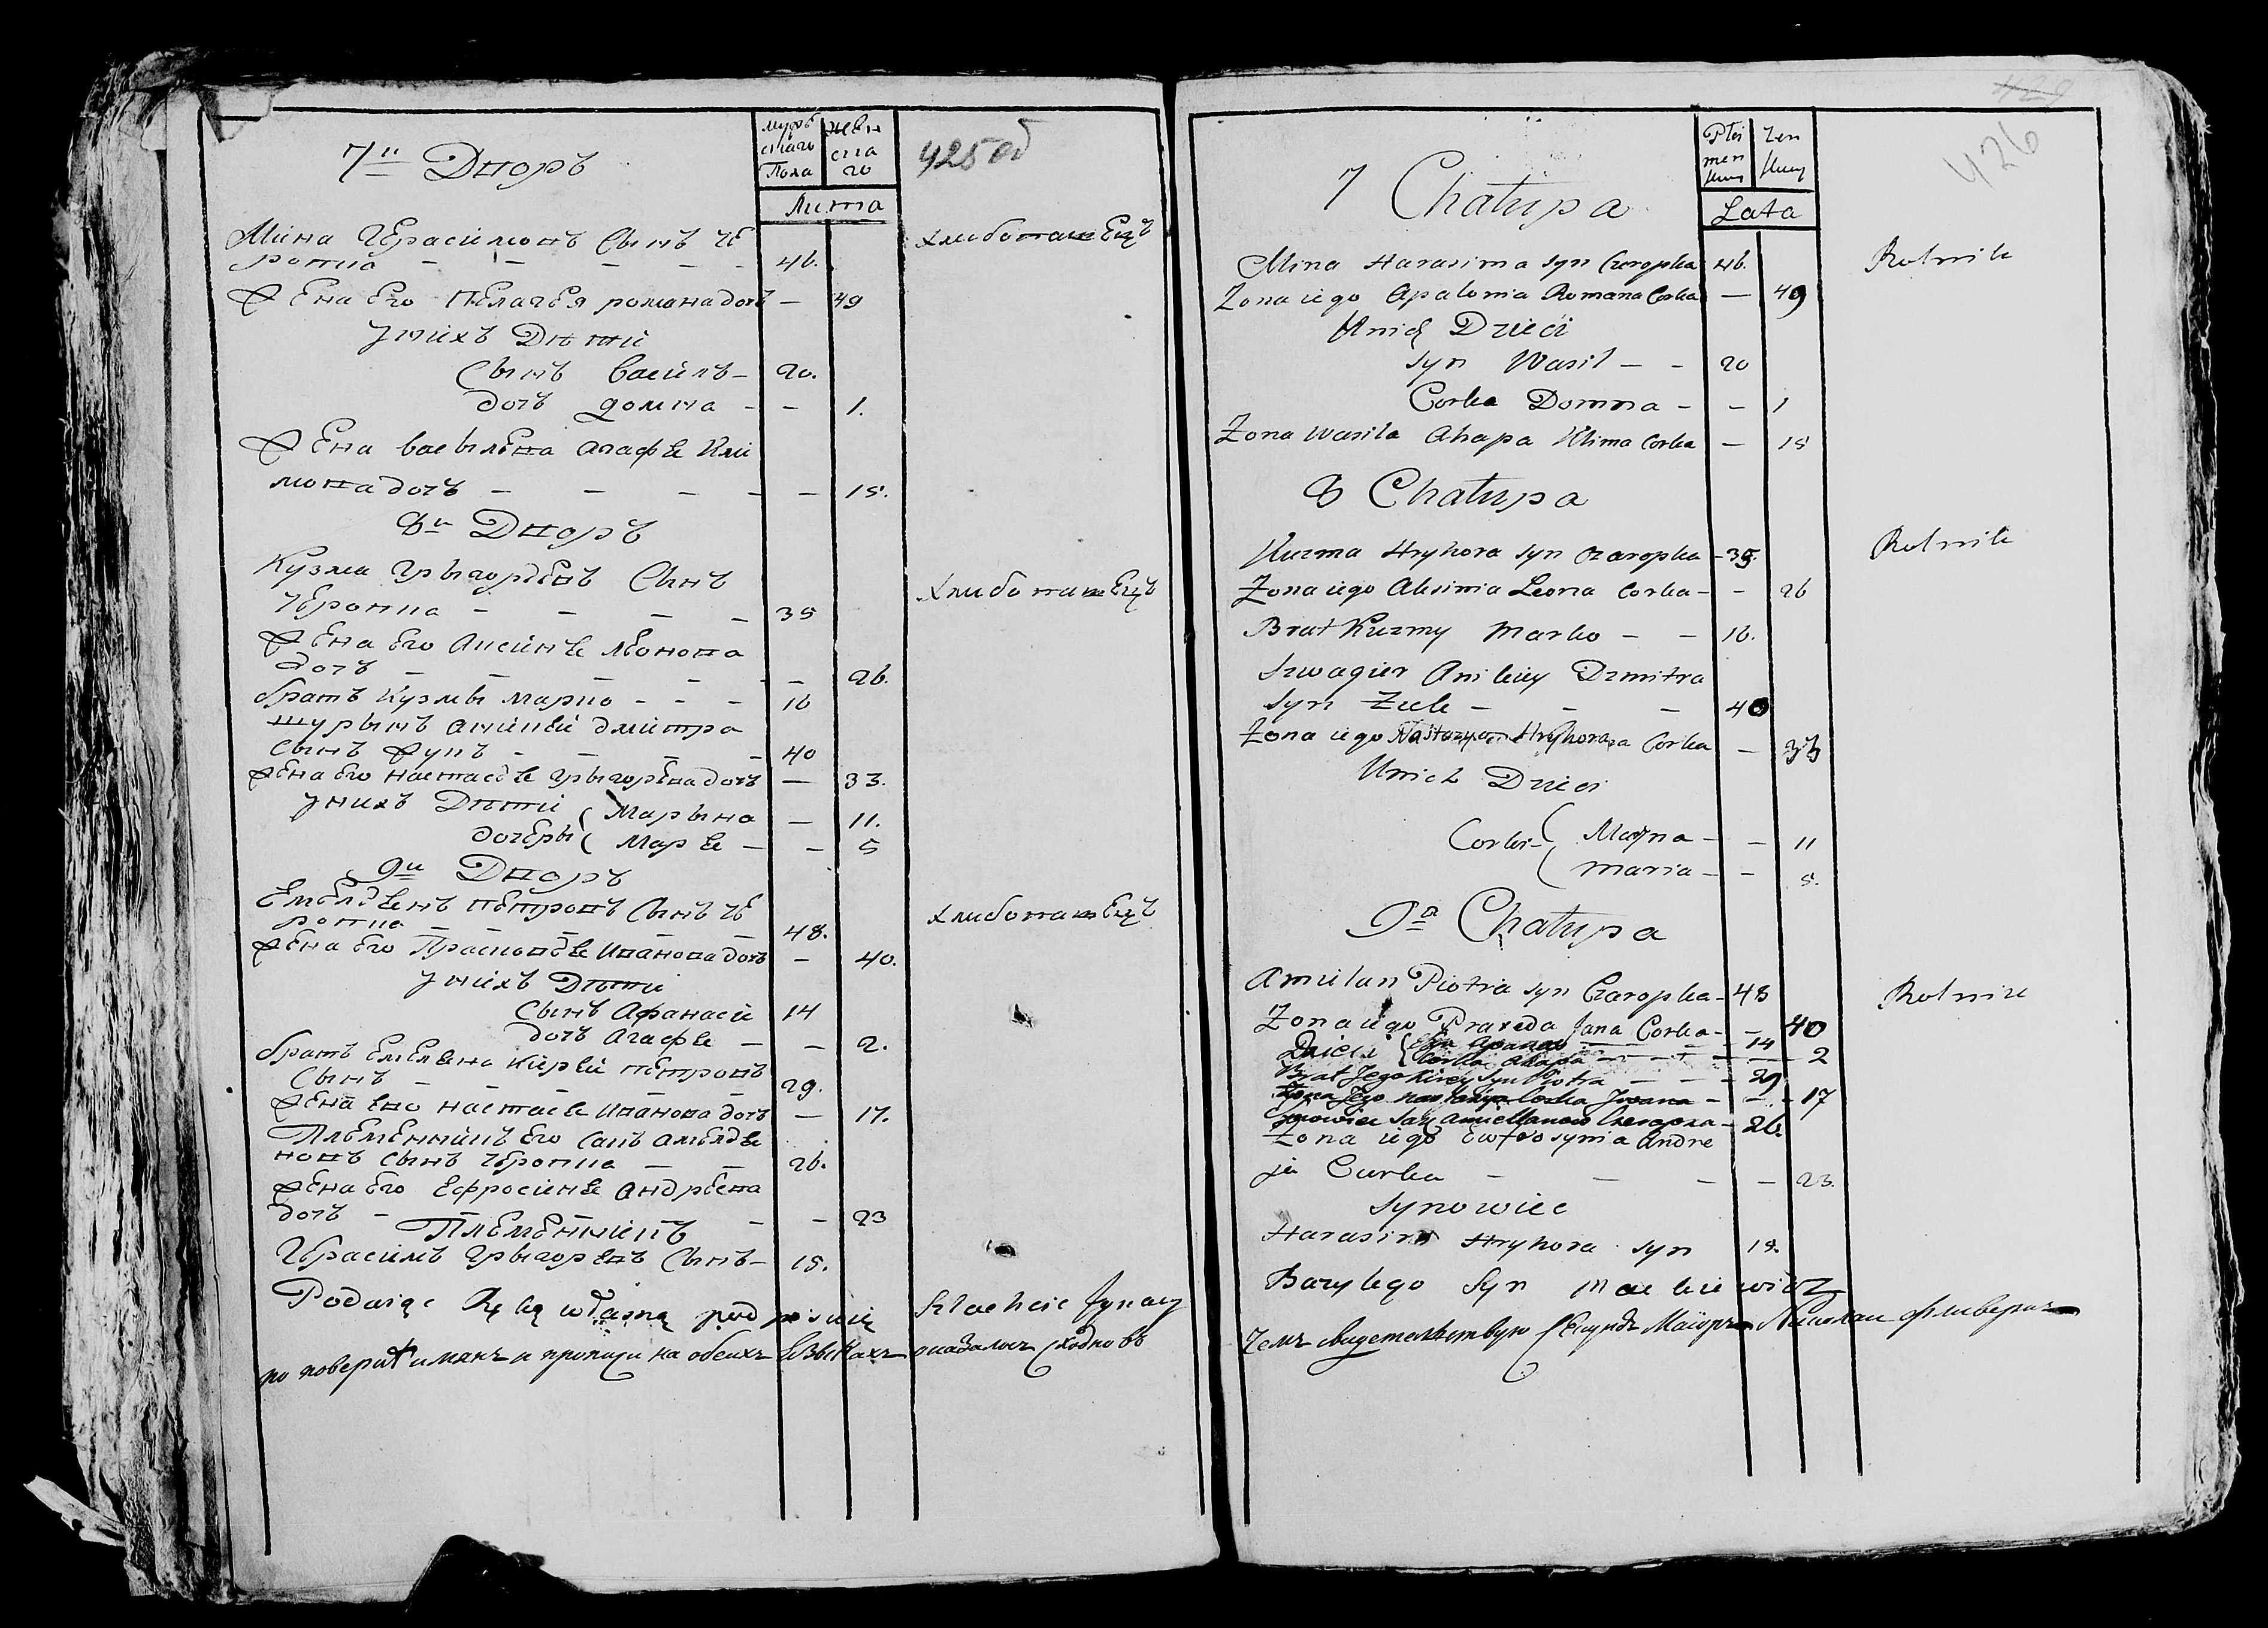 7й Дворъ
мужескаго Пола
женскаго
Лита
425 об
Мина Герасимовъ Сынъ Че
ропка — — — — — 46.
хлибопашЕцъ
Жена Его ПЕлагЕя романадочъ — 49
У нихъ Дѣти
Сынъ Василъ — 20.
дочъ домна — — 1.
Жена васылЕва агафѣ Кли
мовадочъ — — — — — 15.
8й Дворъ
Кузма ГрыгорЕвъ Сынъ
Черопка — — — — 35
хлибопашЕцъ
Жена Его Аксинѣ лЕонова
дочъ — — — — — 26.
братъ Кузмы марко — — — 16
шурынъ аникѣй дмитра
Сынъ жукъ — — — — 40
жена Его настасѣ ГрыгорЕва дочъ — 33.
У нихъ Дѣти
дочЕры ( Марына — 11.
( Марѣ — — 5
9й Дворъ
ЕмЕлѣнъ пЕтровъ Сынъ чЕ
ропка — — — — — 48.
хлибопашЕцъ
жЕна Его Прасковѣ Иванова дочъ — 40.
У нихъ Дѣти
Сынъ Афанаси 14
дочъ Агафѣ — — 2.
братъ ЕмЕлѣна Кирѣй пЕтровъ
Сынъ — — — — 29.
жЕна Ево настасѣ Иванова дочъ — 17.
ПлЕмЕнникъ Его Сакъ амЕлѣ
новъ Сынъ чЕропка — — 26.
жЕна Его Ефросинѣ АндрЕева
дочъ — — — 23
ПлЕмЕнникъ
ГЕрасимъ ГрыгорЕвъ Сынъ — 15.
Podaiąc Ręką własną podpisuię Szlachcic Jgnacy
по поверки имянъ и прописи на обеихъ Языкахъ оказалось сходно въ
426
7 Chałupa
Plci męn skiey
żen skiey
Lata
Mina Harasima syn Czeropka 46.
Rolnik
Zona iego Apalonia Romana Corka — 49
Unich Dzieci
syn Wasil — — 20
Corka Domna — — 1
Zona Wasila Ahapa Klima Corka — 15
8 Chałupa
Kuzma Hryhora syn Czaropka — 35.
Rolnik
Zona iego Aksinia Leona Corka — — 26
Brat Kuzmy Marko — — 16.
Szwagier Anikiey Dzmitra
syn Żuk — — — 40
Zona iego Nastazya Hryhora Corka — 33
Unich Dzieci
Corki ( Maryna — — 11
( Maria — — 5.
9a Chałupa
Amilan Piotra syn Czaropka — 48
Rolnik
Zona iego Praxeda Jana Corka — — 40
Dzieci { Syn Apanas — — — 14
Corka Ahapa — — — — 2
Brat Jego Kirey Syn Piotra — — — 29
Zona Jego Nastazya Corka Jwana — — 17
Synowiec Sak Amiellanow Czeropka — 26.
Zona iego Ewfrosynia Andre
ja Curka — — — — 23.
Synowiec
Harasim Hryhora syn 15.
Bazylego Syn Mackiewicz
Чемъ свидетельствую Секундъ Маіоръ Николай Фливеркъ